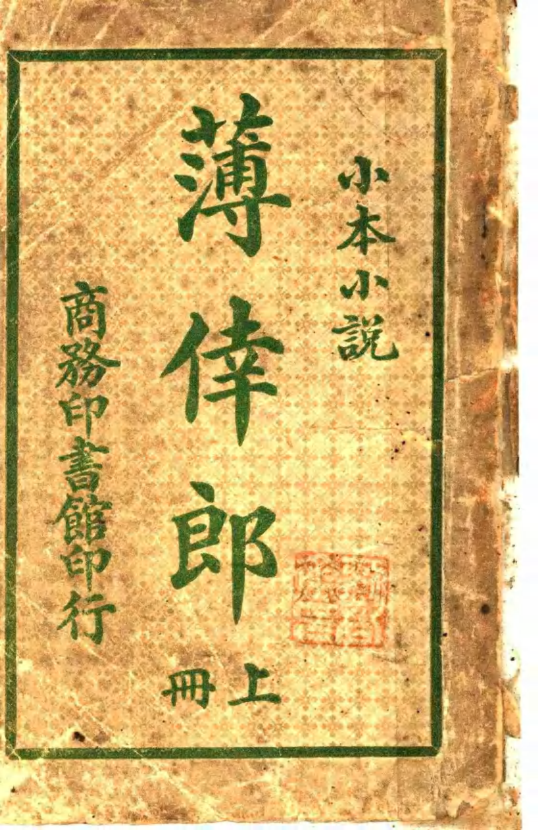 小本小説
薄倖郎
上冊
商務印書館印行